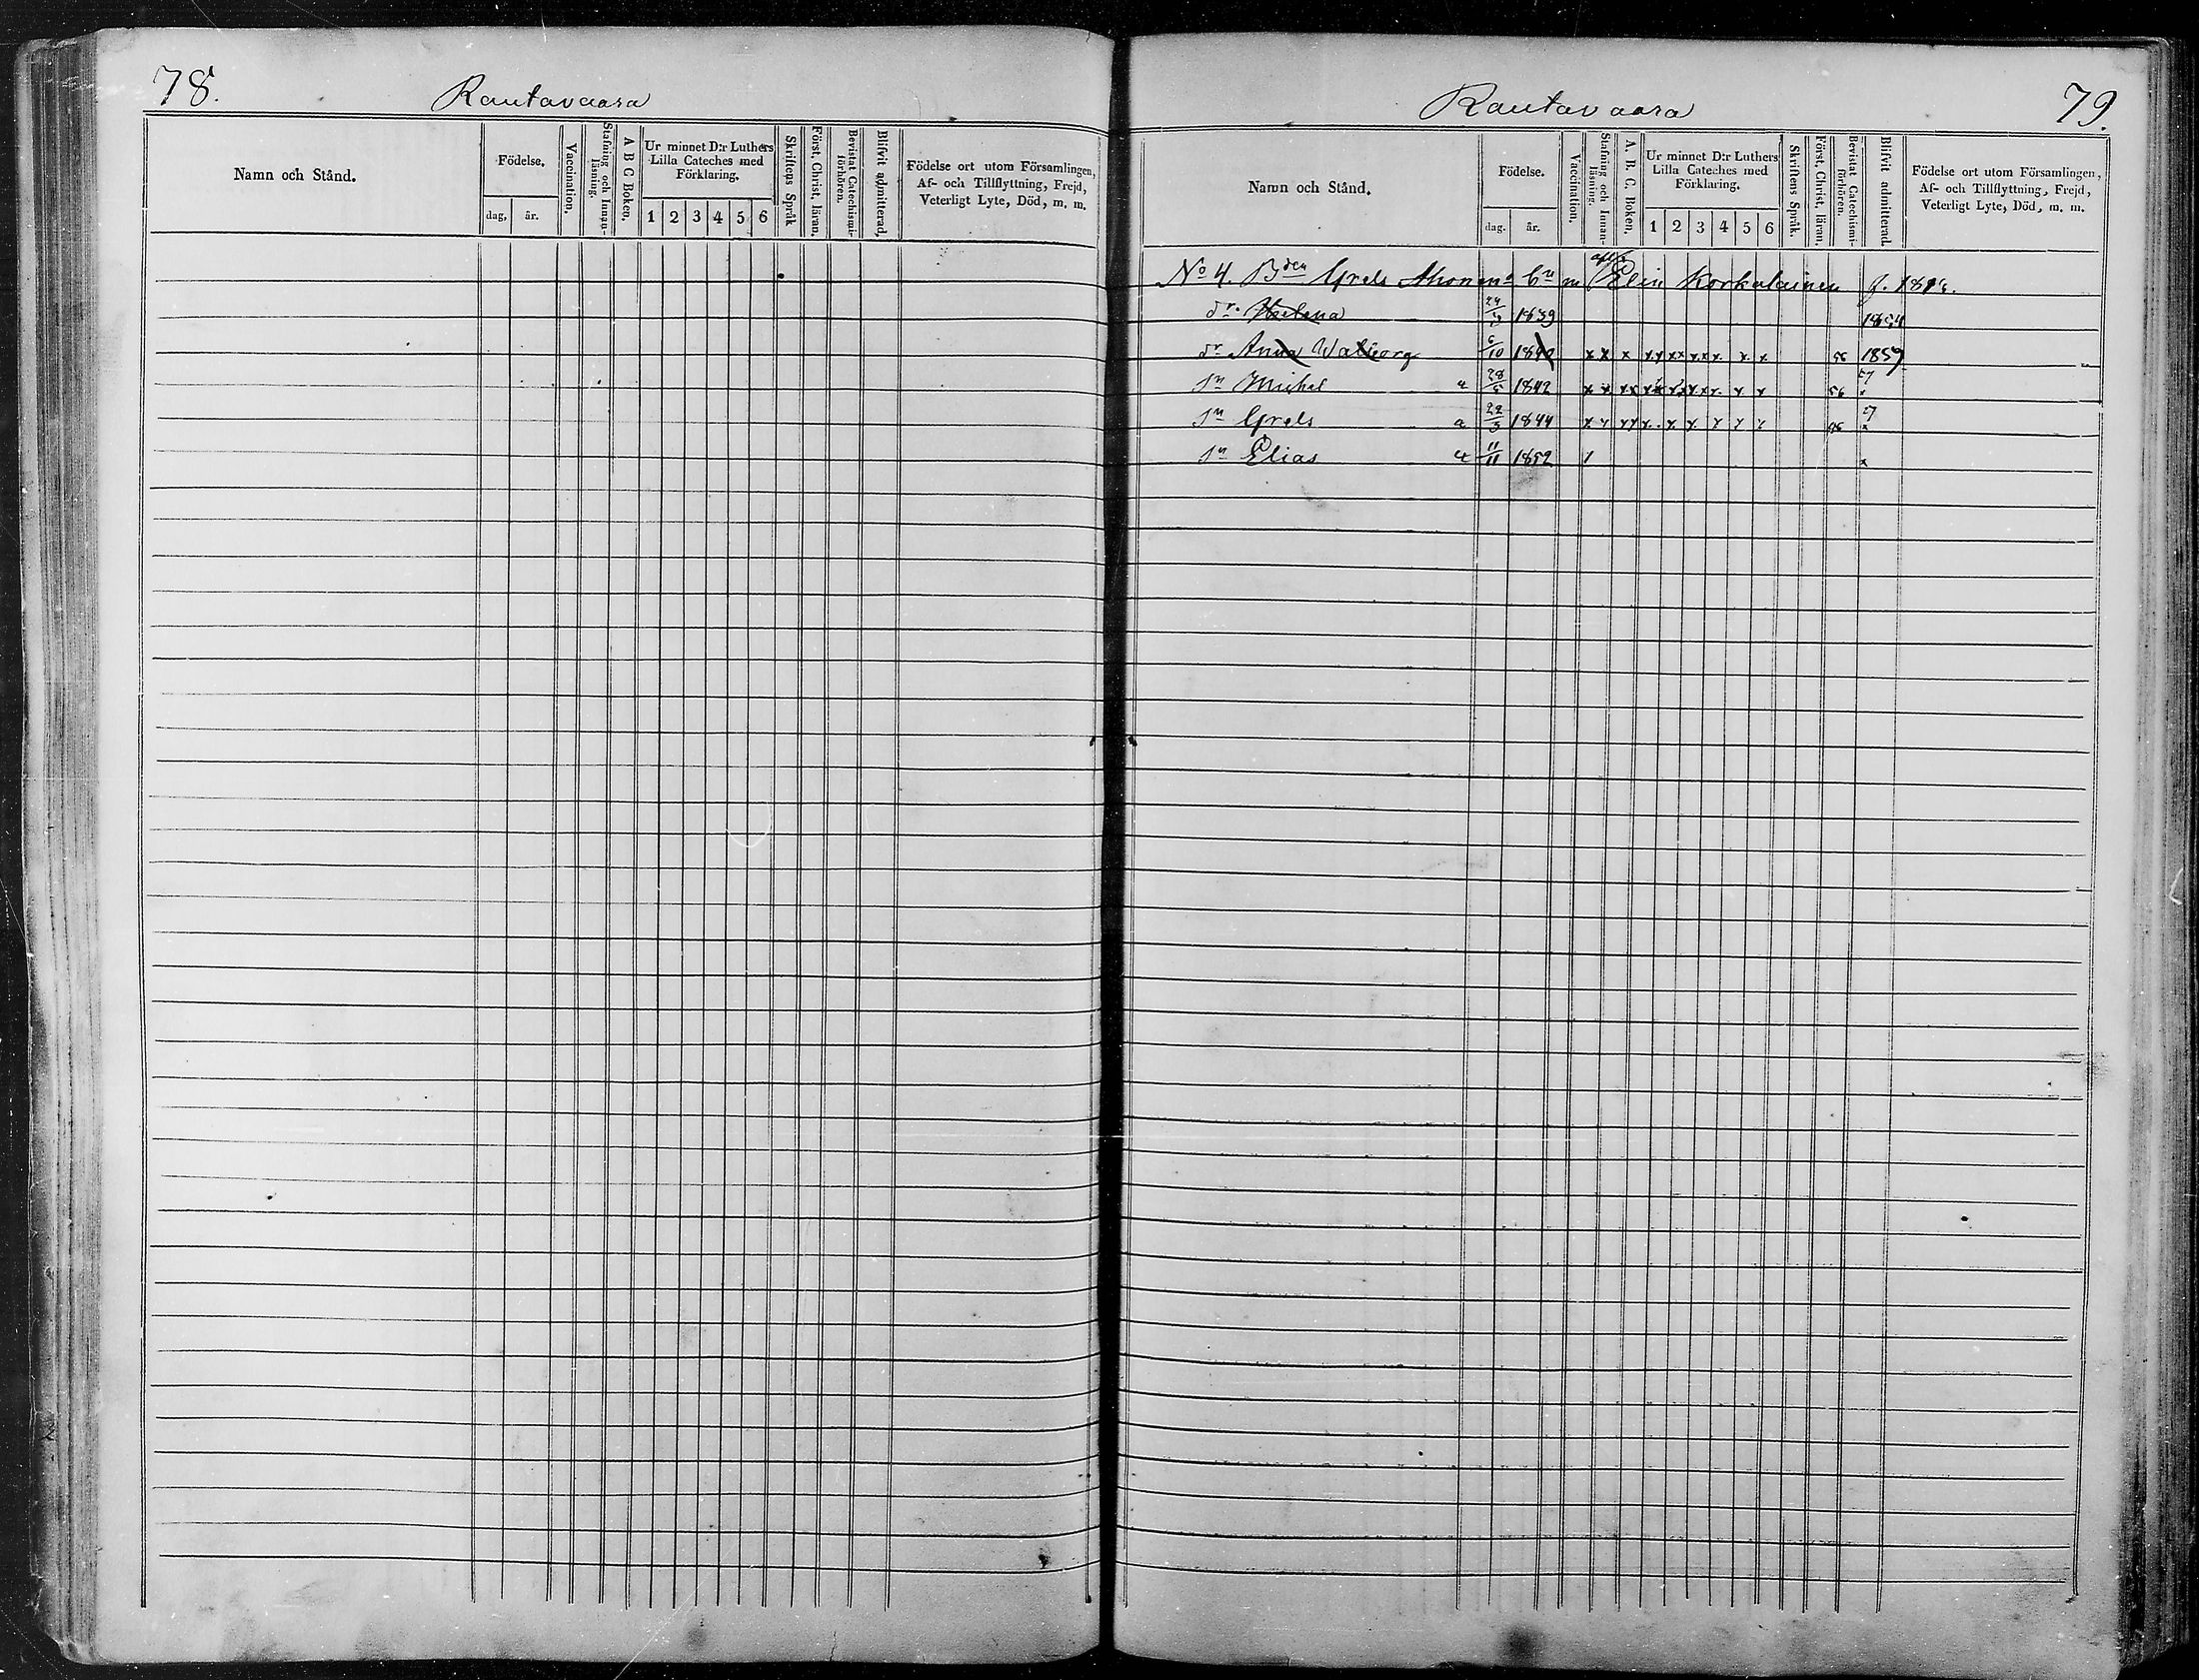 78.
Rautavaara
Namn och Stånd.
Födelse.
dag, år.
Vaccination.
Stafning och Innan-läsning.
A B C Boken.
Ur minnet D:r Luthers Lilla Cateches med Förklaring.
1 2 3 4 5 6
Skriftens Språk
Först. Christ. läran.
Bevistat Catechismi-förhören.
Blifvit admitterad.
Födelse ort utom Församlingen,
Af- och Tillflyttning, Frejd,
Veterligt Lyte, Död, m. m.
Rautavaara
79.
Namn och Stånd.
Födelse.
dag. år.
Vaccination.
Stafning och Innan-läsning.
A. B. C. Boken.
Ur minnet D:r Luthers Lilla Cateches med Förklaring.
1 2 3 4 5 6
Skriftens Språk.
Först. Christ. läran.
Bevistat Catechismi-förhören.
Blifvit admitterad.
Födelse ort utom Församlingen,
Af- och Tillflyttning, Frejd,
Veterligt Lyte, Död, m. m.
No 4. Bden Grels Ahonens bn m Elin Korkalainen f.
dr. Helena 1839 1854
dr Anna Walborg 6/10 1840 x x x x x x x x x x x x 56 1859
sn Michel a 28/5 1842 x x x x x x x x x x x x x 56 57 x
sn Grels a 22/3 1844 x x x x x x x x x x 56 57 x
sn Elias a 11/11 1852 / x